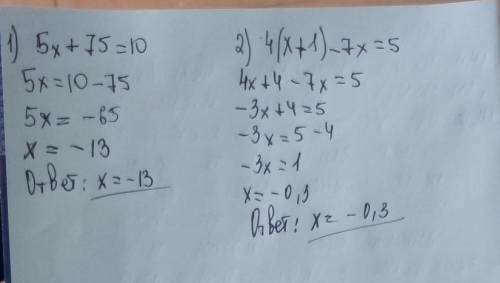 1) 5x+75=10
5x=10-75
5x= -65
x= -13
Ответ: x=-13
2) 4(x+1)-7x=5
4x+4-7x=5
-3x+4=5
-3x=5-4
-3x=1
x=-0,3
Ответ: x= -0,3